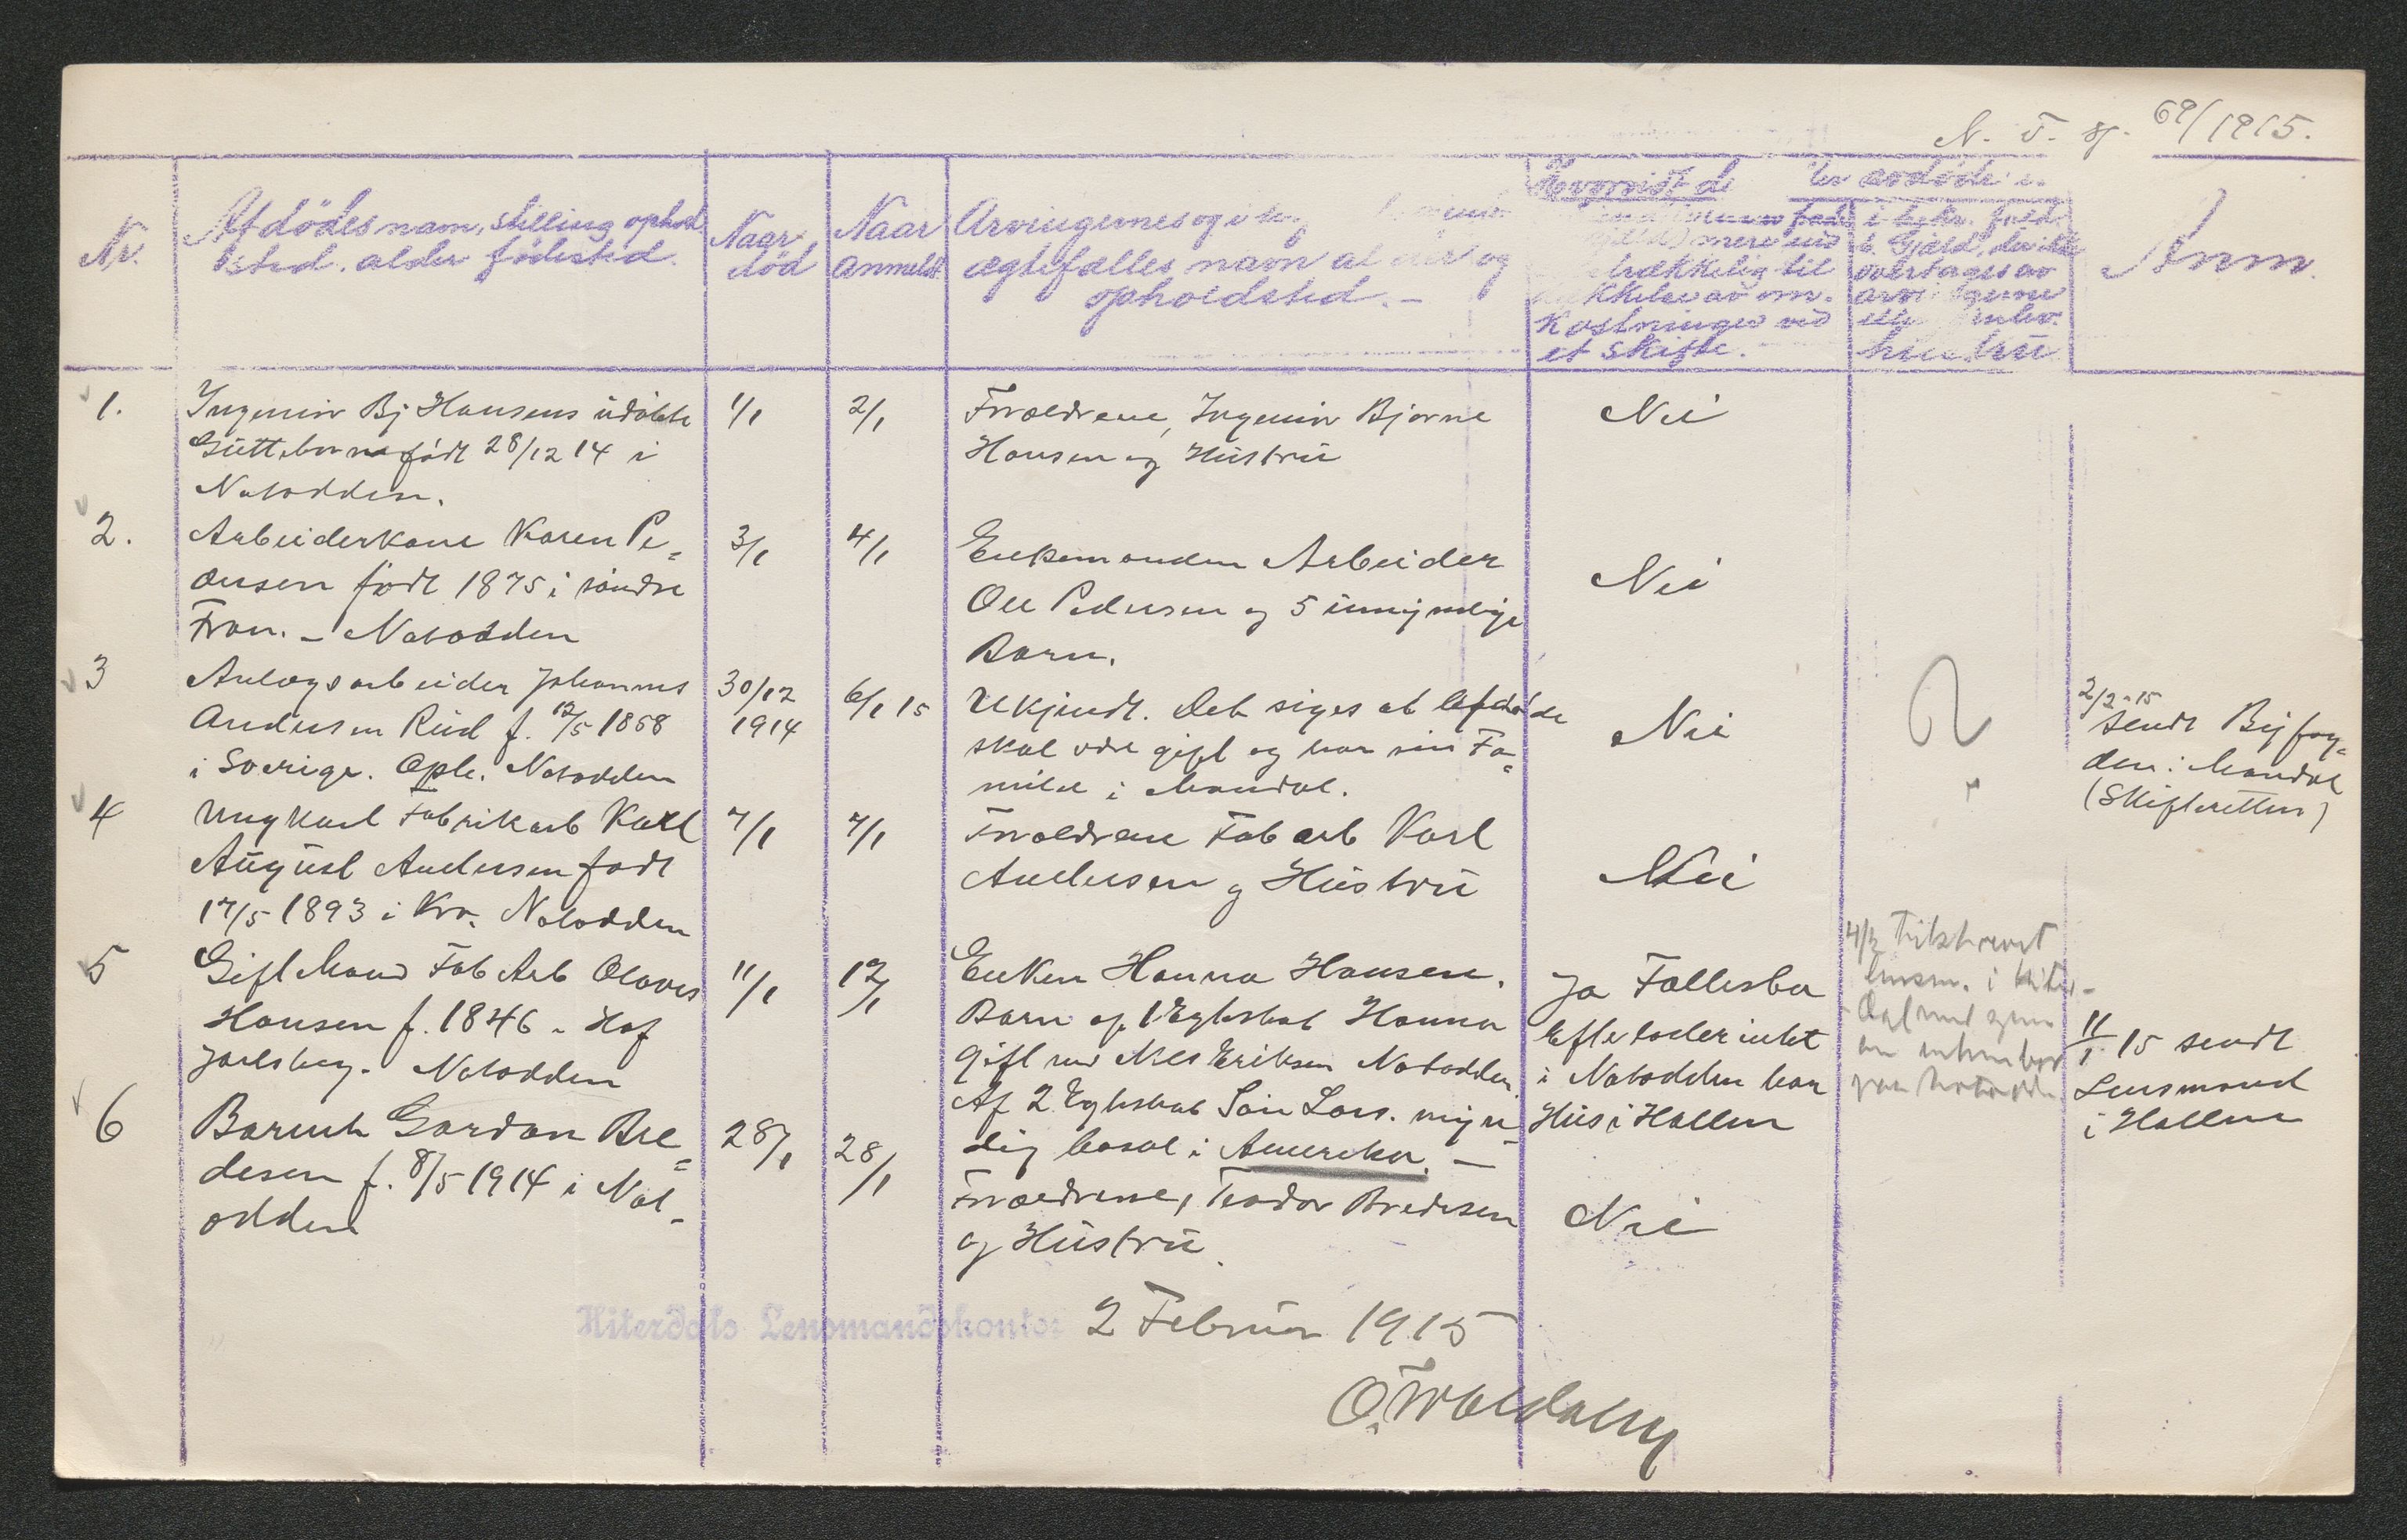 N. T. 69/1915.
Nr.
Afdödes navn, stilling ophold
sted. alder födested.
Naar
död
Naar
anmeldt
Arvingernes og i
ægtefælles navn al og
opholdsted. -
Hvorvidt de
mere end
trækkelig til
av om-
kostninger ved
et skifte.
er avdöde
i bekr. fald.
Gjæld, der ikke
overtages av
hustru
Anm.
1.
Ingeniör Bj Hansens udöbte
Guttebarn födt 28/12 14 i
Notodden.
1/1
2/1
Forældrene, Ingeniör Bjarne
Hansen og Hustru
Nei
2.
Arbeiderkone Karen Pe=
dersen födt 1875 i söndre
Fron. - Notodden
3/1
4/1
Enkemanden Arbeider
Ole Pedersen og 5 umyndige
Barn.
Nei
3
Anlægsarbeider Johannes
Andersen Rud f. 12/5 1868
i Sverige. Oph. Notodden
30/12
1914
6/1 15
Ukjendt. Det siges at Afdöde
skal være gift og har sin Fa=
milie i Mandal.
Nei
2/2-15
Sendt Byfog=
den i Mandal
(Skifteretten)
4
Ungkarl Fabrikarb Karl
August Andersen födt
17/5 1893 i Kra. Notodden
7/1
7/1
Forældrene Fab arb Karl
Andersen og Hustru
Nei
5
Gift Mand Fab Arb Olaves
Hansen f. 1846 - Hof
Jarlsberg. Notodden
11/1
12/1
Enken Hanna Hansen.
Barn af 1 Egteskab Hanna
gift med Nils Eriksen Notodden
Af 2 Egteskab Sön Lars. myn-
dig bosat i Amerika. -
Ja Fællesbo
Efterlader intet
i Notodden har
Hus i Hollen
4/2 Tilskrevet
lensm. i Hiter-
dal
11/1 15 sendt
Lensmand
i Hollen
6
Baruch Gordon Bre=
desen f. 8/5 1914 i Not-
odden
28/1
28/1
Forældrene, Teodor Bredesen
og Hustru.
Nei
Hiterdals Lensmandskontor 2 Februar 1915